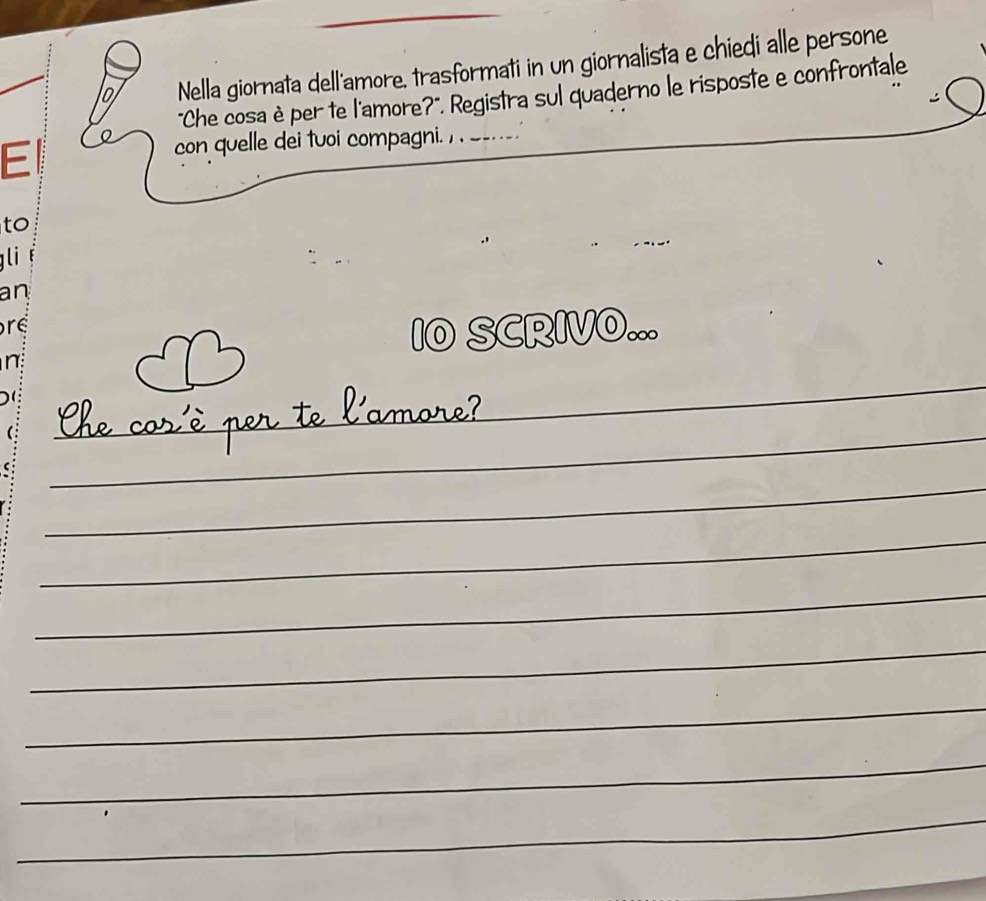 Nella giornata dell'amore, trasformati in un giornalista e chiedi alle persone
"Che cosa è per te l'amore?". Registra sul quaderno le risposte e confrontale
con quelle dei tuoi compagni.
EI
to
gli
an
IO SCRIVO...
Che cos'è per te l'amore?